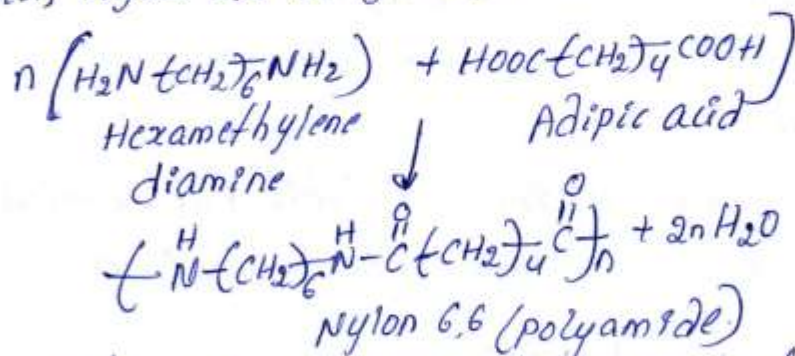 n (H₂N-(CH₂)₆-NH₂) + HOOC-(CH₂)₄-COOH]
Hexamethylene diamine
Adipic acid
↓
-(N(H)-(CH₂)₆-N(H)-C(=O)-(CH₂)₄-C(=O))ₙ- + 2n H₂O
Nylon 6,6 (polyamide)